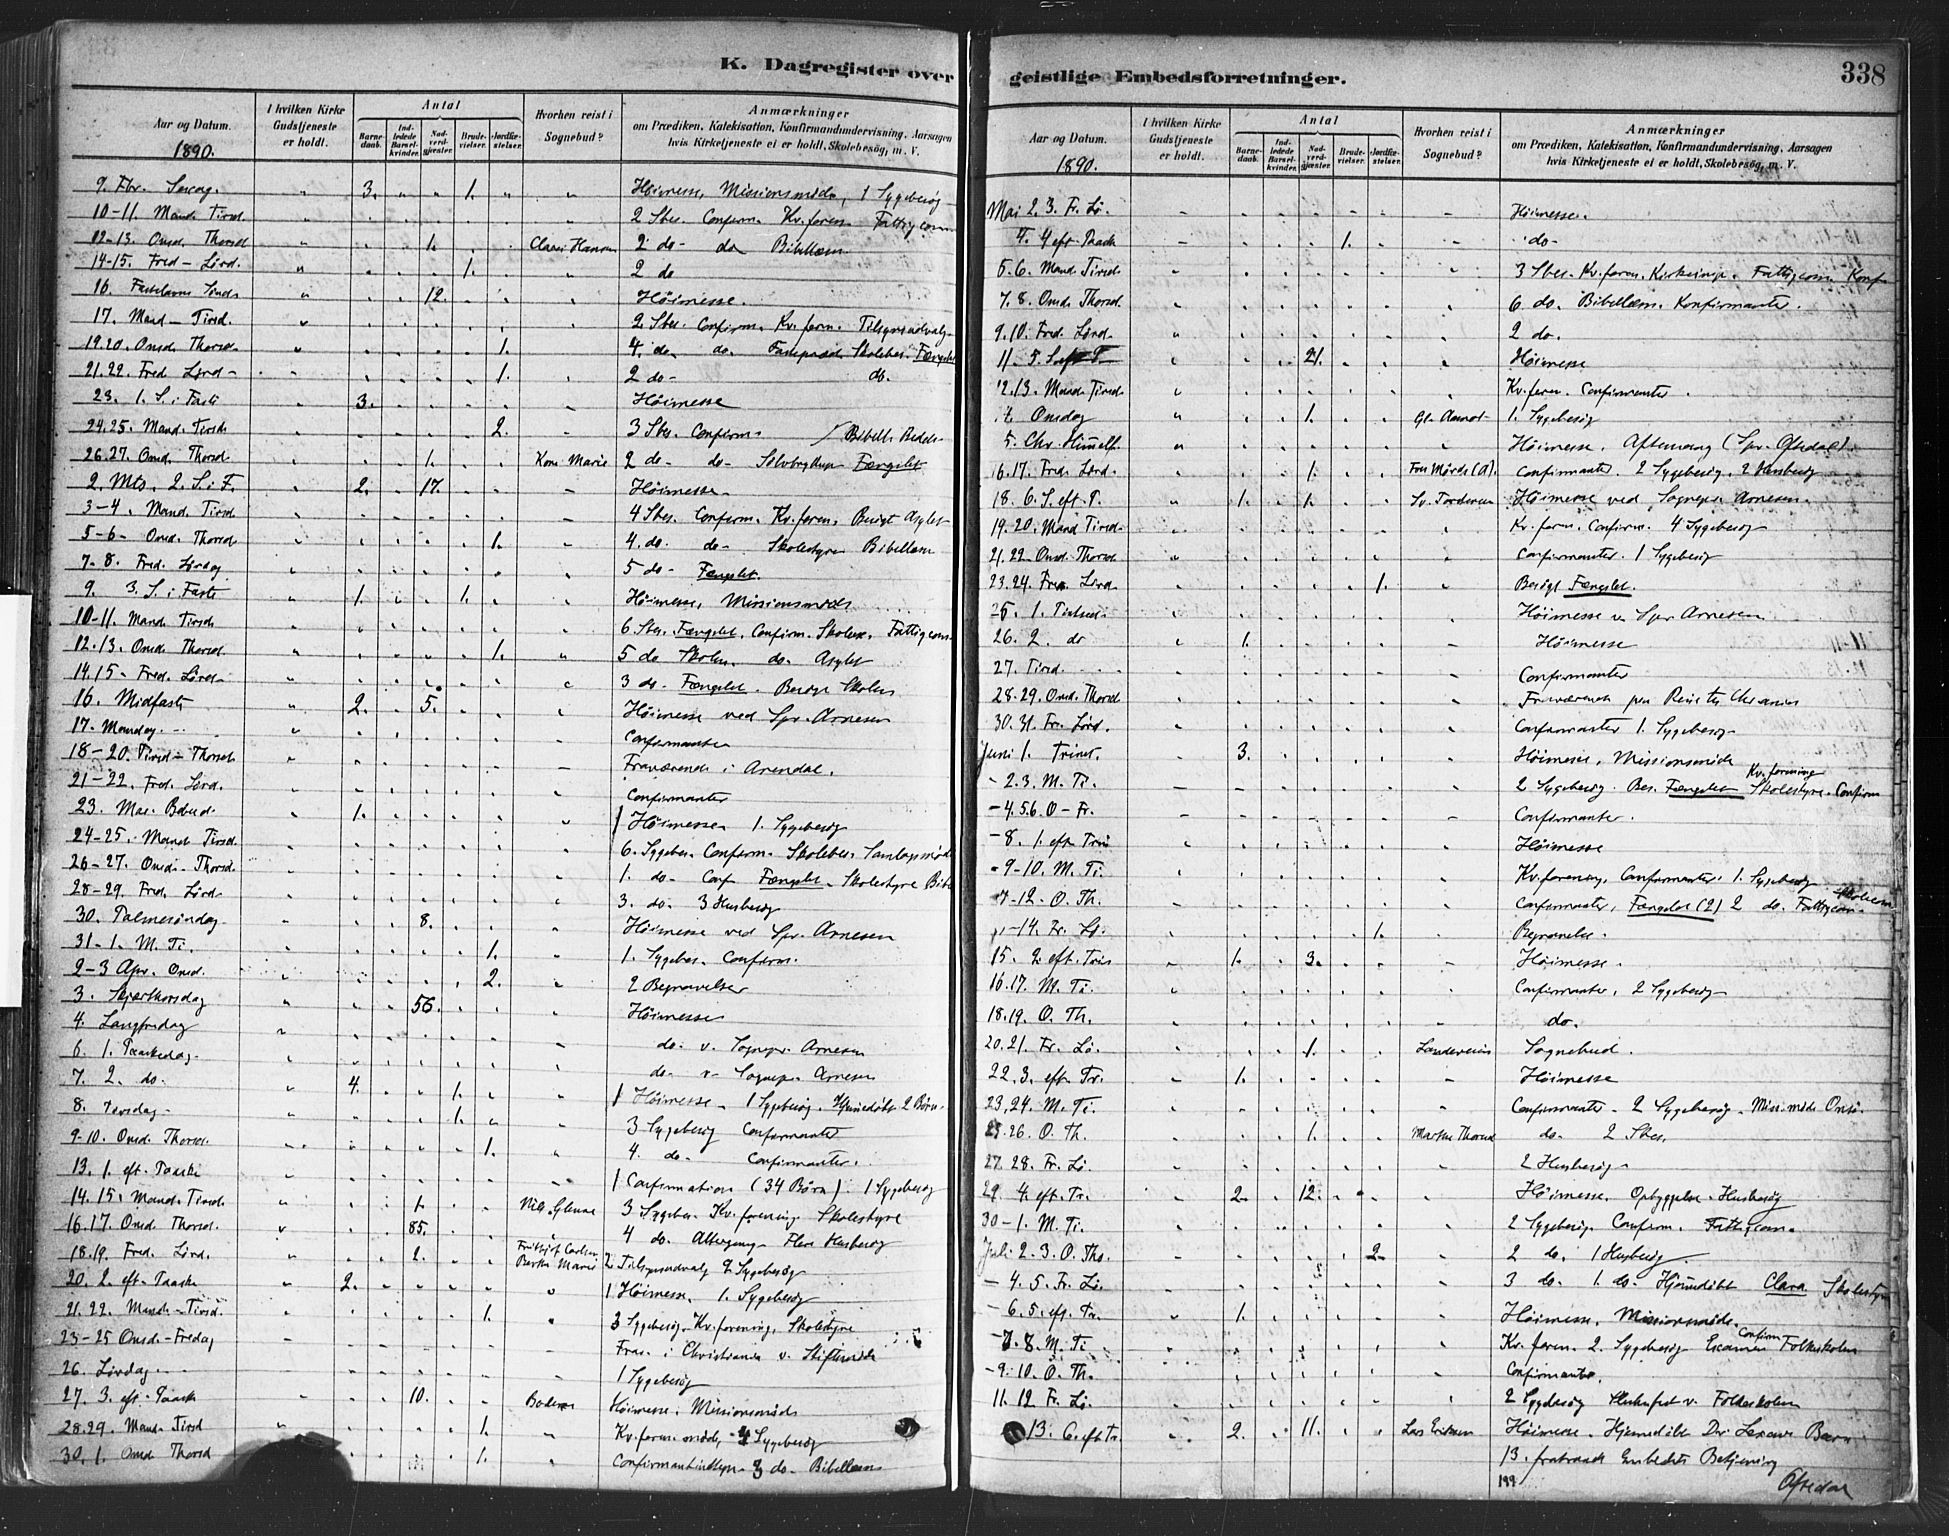 K. Dagregister over geistlige Embedsforretninger.
338
Aar og Datum. 1890.
I hvilken Kirke Gudstjeneste er holdt.
Antal
Barnedaab.
Indledede Barselkvinder.
Nadverdgjæster.
Brudevielser.
Jordfæstelser.
Hvorhen reist i Sognebud?
Anmærkninger
om Prædiken, Katekisation, Konfirmandundervisning, Aarsagen
hvis Kirketjeneste ei er holdt, Skolebesøg, m. V.
9. Fbr. " 3. 1. Høimesse, Missionsmøde, 1 Sygebesøg
10-11. Mand. Tirsd. 2 Sbes. Confirm. Kv. foren. Fattigcomm
12-13. Onsd. Thorsd. 1. Hansen 2 do- do Bibellæsn
14-15. Fred- Lørd. 1. 2 do
16. Fastelavns Sønd. 12. Høimesse.
17. Mand- Tirsd. 2 Sbes. Confirm. Kv. foren. Tilsynsudvalg
19.20. Onsd. Thorsd. 1. 4. do. do. Skolebes. Fængslet
21.22. Fred Lørd- 1. 2 do- do.
23. 1. S. i Faste 3. Høimesse
24.25. Mand. Tirsd. 2. 3 Sbes. Confirm.
26.27. Onsd. Thorsd. 1. Kone Marie 2 do- do- Sølvbryllup Fængslet
2. Mts. 2. S. i F. 2. 17. Høimesse.
3-4. Mand. Tirsd 4 Sbes. Confirm. Kv. foren. Besøgt Asylet
5-6- Onsd. Thorsd 1. 4. do. do- Skolestyre Bibellæsn
7-8. Fred. Lørdag 5 do- Fængslet.
9. 3. S. i Faste 1. 1. Høimesse, Missionsmøde
10-11. Mand Tirsd 6 Sbes. Fængslet. Confirm. Fattigcom.
12.13. Onsd Thorsd 1. 5 do do. Asylet
14.15- Fred. Lørd. 3 do- Fængslet.
16. Midfaste 2. 5. Høimesse ved Spr. Arnesen
17. Mandag. Confirmanter
18-20. Tirsd-Thorsd. Fraværende i Arendal.
21-22. Fred. Lørd. Confirmanter
23. Mar. Bebud. 1. Høimesse 1. Sygebesøg
24-25. Mand. Tirsd. 6. Sygebes. Confirm. Skolebes. Samlagsmøde
26-27. Onsd. Thorsd. 1. do- Conf Fængslet. Skolestyre
28-29. Fred. Lørd. 3. do. 3 Husbesøg
30. Palmesøndag 8. Høimesse ved Spr. Arnesen
31-1. M. Ti. 1. 1. Sygebes. Confirm.
2-3 Apr. Onsd. 2. 2 Begravelser
3. Skjærthorsdag 56. Høimesse
4. Langfredag do. v. Sognepr. Arnesen
6. 1. Paaskedag. do- v- Sognepr. Arnesen
7. 2. do. 4. 1. Høimesse. 1 Sygebesøg. Hjemmedøbt 2 Børn.
8. Tirsdag- 1. 3 Sygebesøg Confirmanter
9-10. Onsd. Thorsd. 1. 4. do. Confirmanter.
13. 1. eft. Paaske 1 Confirmation (34 Børn). 1 Sygebesøg
14.15. Mand. Tirsd. 1. Nils Glenne 3 Sygebes. Kv. forening Skolestyre
16.17. Onsd Thorsd. 85. 4 do. Altergang. Flere Husbesøg
18.19. Fred. Lørd. 2. Fritjof Carlsen Marie 2 Tilsynsudvalg 2 Sygebesøg
20. 2. eft. Paaske 2. 1 Høimesse. 1. Sygebesøg
21.22. Mand-Tirsd. 1. 3 Sygebesøg. Kv. forening, Skolestyre
23-25 Onsd-Fredag Frav. i Christiania v. Stiftsmøde
26. Lørdag. 1 Sygebesøg
27. 3. eft. Paaske 10. Høimesse. Missionsmøde
28.29. Mand. Tirsd 1. Kv. foren. møde, 4 Sygebesøg
30. 1. Onsd Thorsd 1. do- Bibellæsn
Aar og Datum. 1890.
I hvilken Kirke Gudstjeneste er holdt.
Antal
Barnedaab.
Indledede Barselkvinder.
Nadverdgjæster.
Brudevielser.
Jordfæstelser.
Hvorhen reist i Sognebud?
Anmærkninger
om Prædiken, Katekisation, Konfirmandundervisning, Aarsagen
hvis Kirketjeneste ei er holdt, Skolebesøg, m. V.
Mai 2. 3. Fr. Lø. Høimesse.
4. 4 eft. Paask 1. do-
5.6. Mand. Tirsd. 3 Sbes. Kv. foren. Fattigcom. Konf.
7.8. Onsd. Thorsd. 6 do. Bibellæsn. Konfirmanter.
9.10. Fred. Lørd. 2 do.
11. 5. S. eft P. 21. Høimesse
12.13. Mand. Tirsd. Kv. foren. Confirmanter.
Onsdag 1. 1. Sygebesøg
Chr. Himelf. Høimesse. Aftensang
16.17. Fred. Lørd. 1. Confirmanter 2 Sygebesøg. 2 Husbesøg
18. 6. S. eft. P. 1. 1. Høimesse ved Sognepr. Arnesen.
19.20. Mand Tirsd. Kv. foren. Confirm. 4 Sygebesøg
21.22 Onsd. Thorsd Confirmanter. 1 Sygebesøg
23.24. Fred. Lørd. 1. Besøgt Fængslet.
25. 1. Pintsed. Høimesse v. Spr. Arnesen
26. 2. do 1. Høimesse
27. Tirsd. Confirmanter
28-29. Onsd. Thorsd Fraværende paa Reise til Christiania
30. 31. Fr. Lørd. Confirmanter 1. Sygebesøg
Juni 1. Trinit. 3. Høimesse, Missionsmøde
- 2.3. M. Ti. 2 Sygebesøg. Bes. Fængslet Kv. forening Skolestyre. Confirm
- 4.5.6. O-Fr. Confirmanter.
- 8. 1. eft Trin Høimesse
- 9-10. M. Ti. Kv. forening, Confirmanter. 1. Sygebesøg
-12. O. Th. Confirmanter, Fængslet (2) 2 do. Fattigcom.
-14. Fr. Lø. 1. Begravelse.
15. 2 eft. Trin 1. 3. Høimesse.
16.17. M. Ti. Confirmanter, 2 Sygebesøg
18.19. O. Th. do.
20.21. Fr. Lø. 1. Sognebud.
22. 3. eft. Tr. 1. Høimesse
23.24. M. Ti. Confirmanter. 2 Sygebesøg. Miss. møde
25.26. O. Th. 1. do. 2 Sbes.
27.28. Fr. Lø. 2 Husbesøg
29 4. eft. Tr. 2. 12. Høimesse. Opbyggelse. Husbesøg
30-1. M. Ti. 2 Sygebesøg. Confirm. Fattigcom.
Juli 2-3. O. Tho. 2. 2 do. 1 Husbesøg
- 4. 5. Fr. Lø. 3 do. 1. do- Hjemmedøbt Clara Skolestyre
- 6. 5. eft. Tr. 1. Høimesse, Missionsmøde.
- 7. 8. M. Ti Kv. foren. 2. Sygebesøg Examen Confirm Folkeskolen
- 9. 10. O. Th. Confirmanter.
11. 12 Fr. Lø. 2 Sygebesøg v. Folkeskolen
13. 6. eft Tr. 2. 11. Lars Eriksen Høimesse. Hjemmedøbt Barn
13. fratraadt Embedets Betjening
199